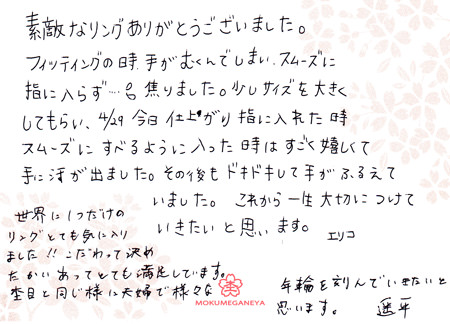 素敵なリングありがとうございました。
フィッティングの時、手がむくんでしまい、スムーズに
指に入らず…焦りました。少しサイズを大きく
してもらい、4/29 今日 仕上がり 指に入れた時
スムーズに すべるように入った時はすごく嬉しくて
手に汗が出ました。その後も ドキドキして手がふるえて
いました。 これから一生大切につけて
いきたいと思います。 エリコ
世界に1つだけの
リングとても気に入り
ました!!こだわって決め
たかいあってとても満足しています。
杢目と同じ様に夫婦で様々な
年輪を刻んでいきたいと
思います。 平
MOKUMEGANEYA